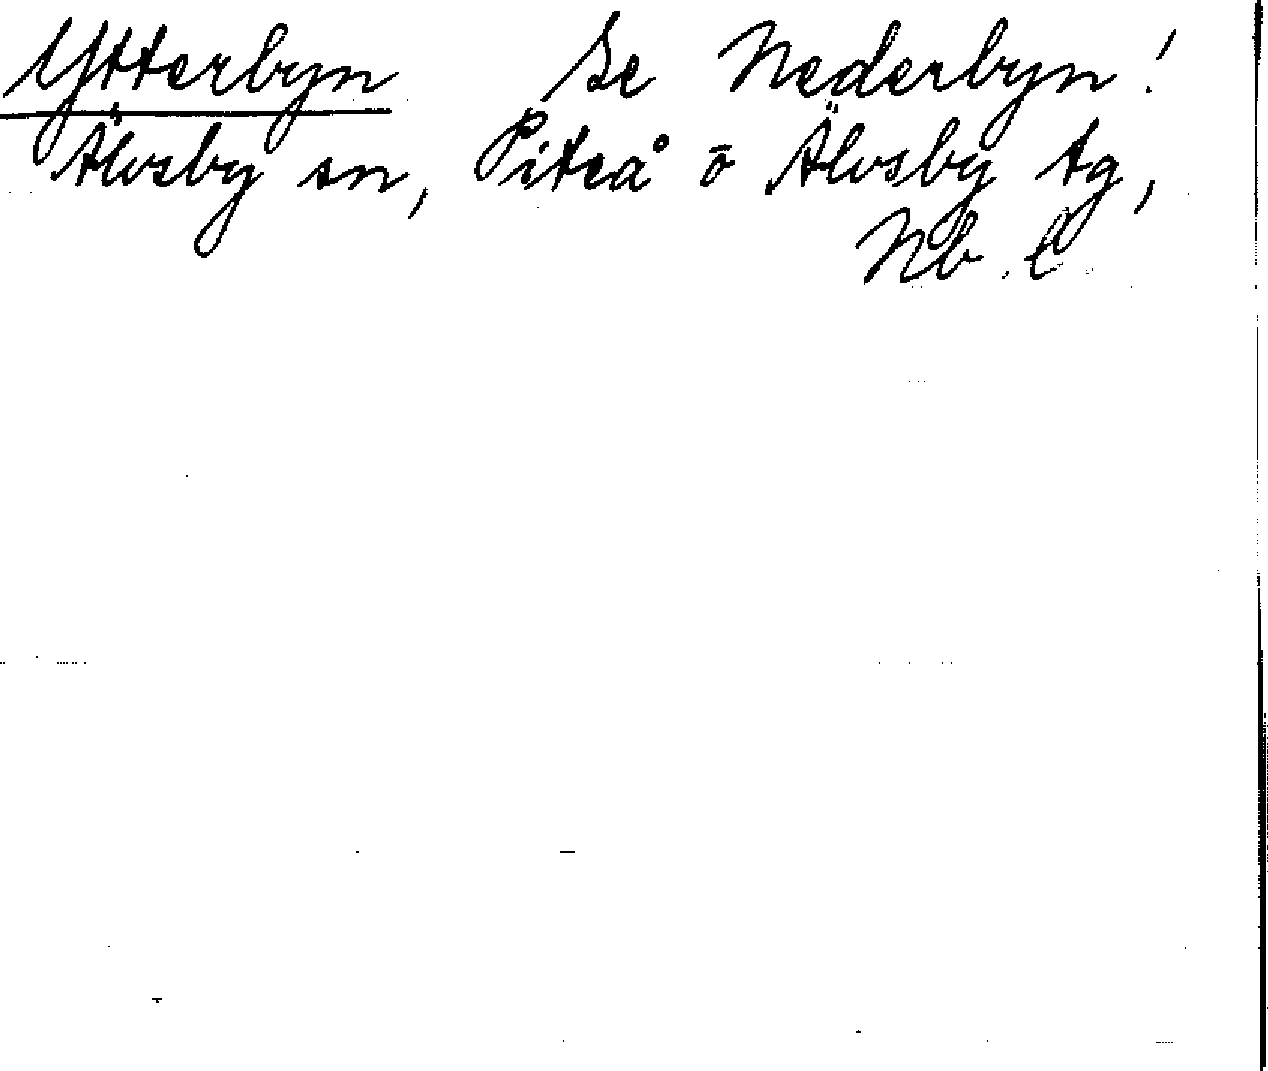 Ytterbyn Se Nederbyn!
Älvsby sn, Piteå ō Älvsby tg,
Nb. l.